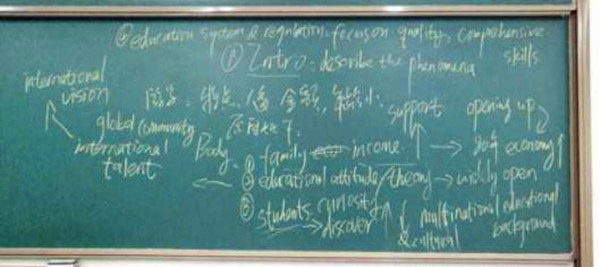 ④ education system & regulation: focus on quality, comprehensive skills
① Intro: describe the phenomena
international vision
support opening up
global community
international talent
Body ① family income → economy ↑
② educational attitude / theory → widely open
③ students curiosity ↑ & multinational educational
→ discover & cultural background